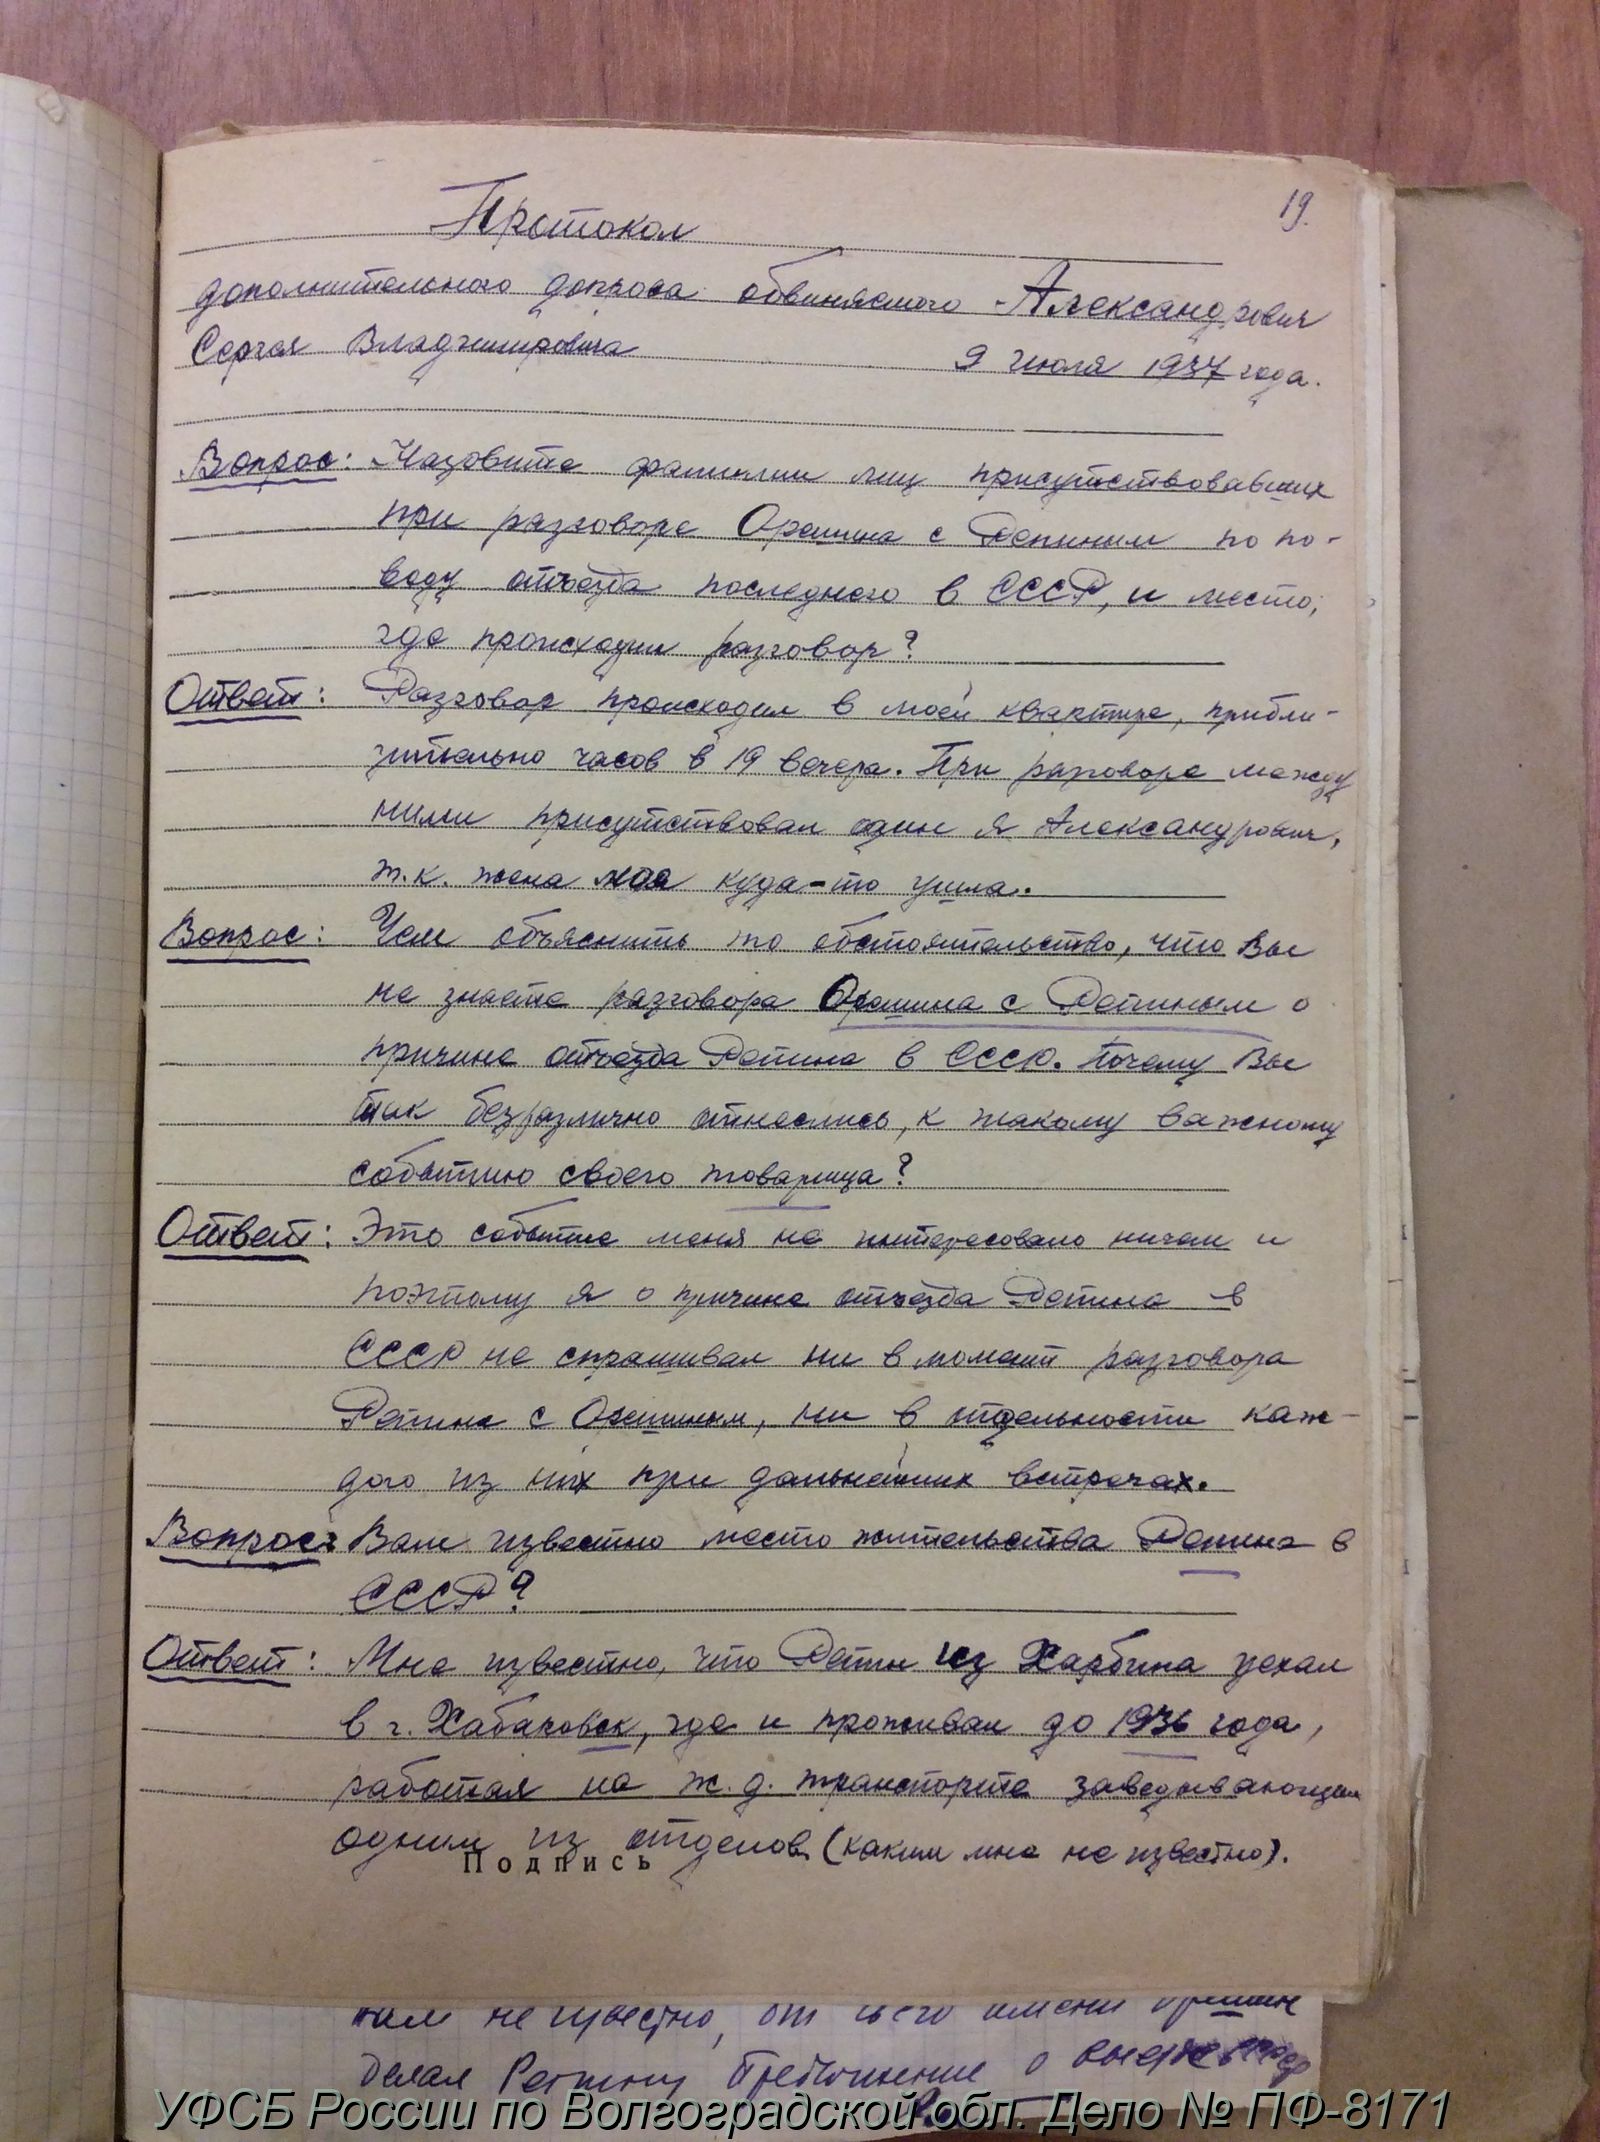 19.
Протокол
дополнительного допроса обвиняемого - Александрович
Сергея Владимировича 9 июля 1937 года.
Вопрос: Назовите фамилии лиц присутствовавших
при разговоре Орешина с Репиным по по-
воду отъезда последнего в СССР, и место,
где происходил разговор?
Ответ: Разговор происходил в моей квартире, прибли-
зительно часов в 19 вечера. При разговоре между
ними присутствовал один я Александрович,
т.к. жена моя куда-то ушла.
Вопрос: Чем объяснить то обстоятельство, что Вы
не знаете разговора Орешина с Репиным о
причине отъезда Репина в СССР. Почему Вы
так безразлично отнеслись, к такому важному
событию своего товарища?
Ответ: Это событие меня не интересовало ничем и
поэтому я о причине отъезда Репина в
СССР не спрашивал ни в момент разговора
Репина с Орешиным, ни в отдельности каж-
дого из них при дальнейших встречах.
Вопрос: Вам известно место жительства Репина в
СССР?
Ответ: Мне известно, что Репин из Харбина уехал
в г. Хабаровск, где и проживал до 1936 года,
работая на ж.д. транспорте заведывающим
одним из отделов (каким мне не известно).
Подпись
нам не известно, от чьего имени Орешин
делал Репину предложение о выезде в СССР
УФСБ России по Волгоградской обл. Дело № ПФ-8171